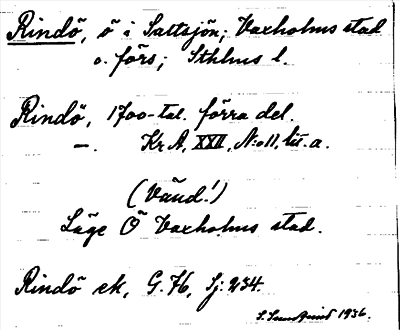 Rindö, ö i Saltsjön; Vaxholms stad
o. förs; Sthlms l.
Rindö, 1700-tal. förra del.
—. Kr A, XXII, N:o 11, lit. a.
(Vänd!)
Läge Ö Vaxholms stad.
Rindö ek, G. 76, Sj: 234.
1936.